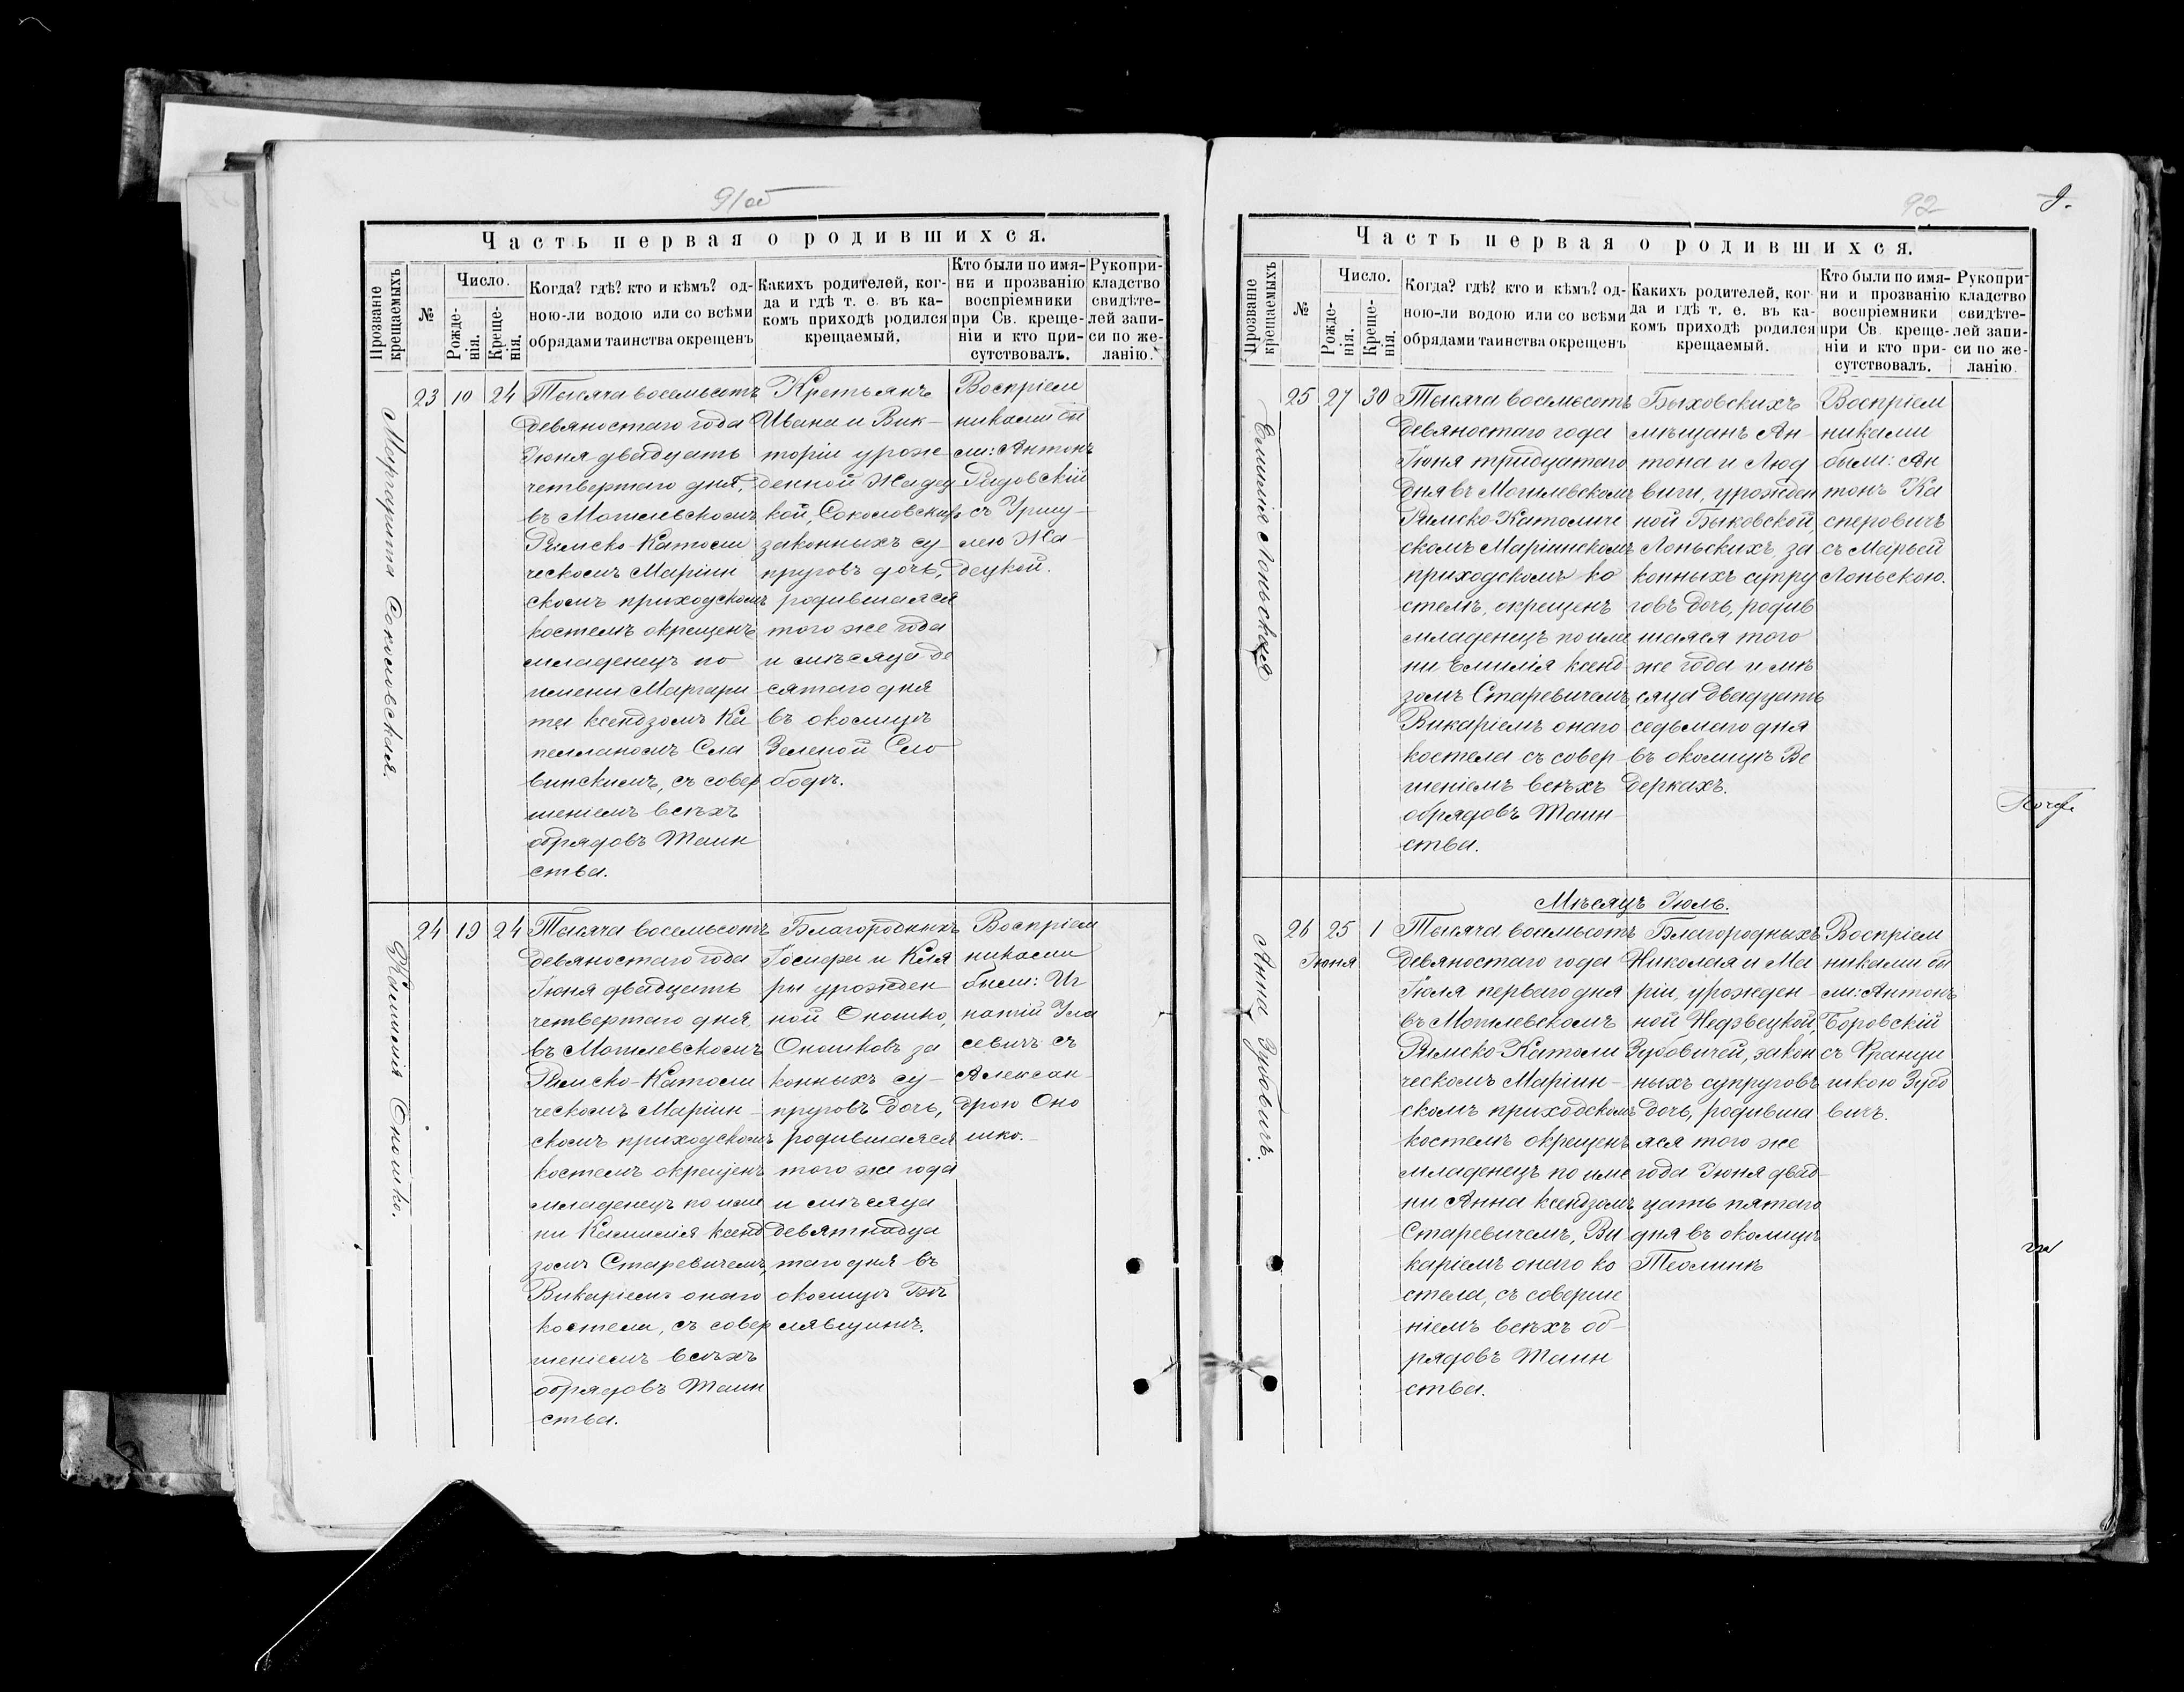 91об
Часть первая о родившихся.
Прозваніе крещаемыхъ
№
Число.
Рожде-
нія.
Креще-
нія.
Когда? гдѣ? кто и кѣмъ? од-
ною-ли водою или со всѣми
обрядами таинства окрещенъ
Какихъ родителей, ког-
да и гдѣ т. е. въ ка-
комъ приходѣ родился
крещаемый.
Кто были по имя-
ни и прозванію
воспріемники
при Св. креще-
ніи и кто при-
сутствовалъ.
Рукопри-
кладство
свидѣте-
лей запи-
си по же-
ланію.
Маргарита Соколовская.
23 10 24
Тысяча восемьсотъ
девяностаго года
Іюня двадцать
четвертаго дня,
въ Могилевскомъ
Римско-Католи
ческомъ Маріин
скомъ приходскомъ
костелѣ окрещенъ
младенецъ по
имени Маргари
та ксендзомъ Ка
пелланомъ Сла
винскимъ, съ совер
шеніемъ всѣхъ
обрядовъ Таин
ства.
Крестьянъ
Ивана и Вик-
торіи урож
денной Жадец
кой, Соколовскихъ
законныхъ су
пруговъ дочь,
родившаяся
того же года
и мѣсяца де
сятаго дня
въ околицѣ
Зеленой Сло
бодѣ.
Воспріем
никами бы
ли: Антонъ
Радовскій
съ Уршу-
лею Жа-
децкой.
Камилія Оношко.
24 19 24
Тысяча восемьсотъ
девяностаго года
Іюня двадцать
четвертаго дня,
въ Могилевскомъ
Римско-Католи
ческомъ Маріин-
скомъ приходскомъ
костелѣ окрещенъ
младенецъ по име
ни Камилія ксенд
зомъ Старевичемъ,
Викаріемъ онаго
костела, съ совер
шеніемъ всѣхъ
обрядовъ Таин
ства.
Благородныхъ
Іосифа и Кла
ры урожден
ной Оношко,
Оношковъ за
конныхъ су-
пруговъ дочь,
родившаяся
того же года
и мѣсяца
девятнадца
таго дня въ
околицѣ Бѣ
лявщинѣ.
Воспріем
никами
были: Иг
натій
севичъ съ
Алексан-
дрою Оно
шко.
92
9.
Часть первая о родившихся.
Прозваніе крещаемыхъ
№
Число.
Рожде-
нія.
Креще-
нія.
Когда? гдѣ? кто и кѣмъ? од-
ною-ли водою или со всѣми
обрядами таинства окрещенъ
Какихъ родителей, ког
да и гдѣ т. е. въ ка-
комъ приходѣ родился
крещаемый.
Кто были по имя-
ни и прозванію
воспріемники
при Св. креще-
ніи и кто при-
сутствовалъ.
Рукопри-
кладство
свидѣте-
лей запи-
си по же-
ланію.
Емилія Лоньская
25 27 30
Тысяча восемьсотъ
девяностаго года
Іюня тридцатаго
дня въ Могилевскомъ
Римско-Католиче
скомъ Маріинскомъ
приходскомъ ко
стелѣ, окрещенъ
младенецъ по име
ни Емилія ксенд
зомъ Старевичемъ,
Викаріемъ онаго
костела съ совер-
шеніемъ всѣхъ
обрядовъ Таин-
ства.
Быховскихъ
мѣщанъ Ан-
тона и Люд
виги, урожден
ной Быковской,
Лоньскихъ, за
конныхъ супру
говъ дочь, родив
шаяся того
же года и мѣ
сяца двадцать
седьмаго дня
въ околицѣ Ве
деркахъ.
Воспріем
никами
были: Ан
тонъ Ка
сперовичъ
съ Марьей
Лоньскою.
Мѣсяцъ Іюль.
Анна Зубовичъ.
26 25 1
Іюня
Тысяча восемьсотъ
девяностаго года
Іюля перваго дня
въ Могилевскомъ
Римско-Католи
ческомъ Маріин-
скомъ приходскомъ
костелѣ окрещенъ
младенецъ по име
ни Анна ксендзомъ
Старевичемъ, Ви
каріемъ онаго ко
стела, съ соверше
ніемъ всѣхъ об-
рядовъ Таин
ства.
Благородныхъ
Николая и Ма
ріи, урожден-
ной Недзвецкой,
Зубовичей, закон
ныхъ супруговъ
дочь, родивша
яся того же
года Іюня двад-
цать пятаго
дня въ околицѣ
Теолинѣ
Воспріем
никами бы
ли: Антонъ
Боровскій
съ Франци
шкою Зубо
вичъ.